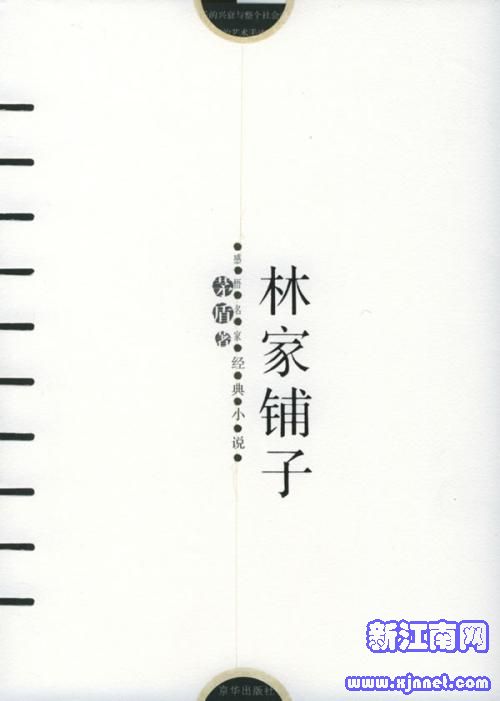 的兴衰与整个社会
的艺术手法
林家铺子
感悟名家经典小说
茅盾著
京华出版社
新江南网
www.xjnnet.com